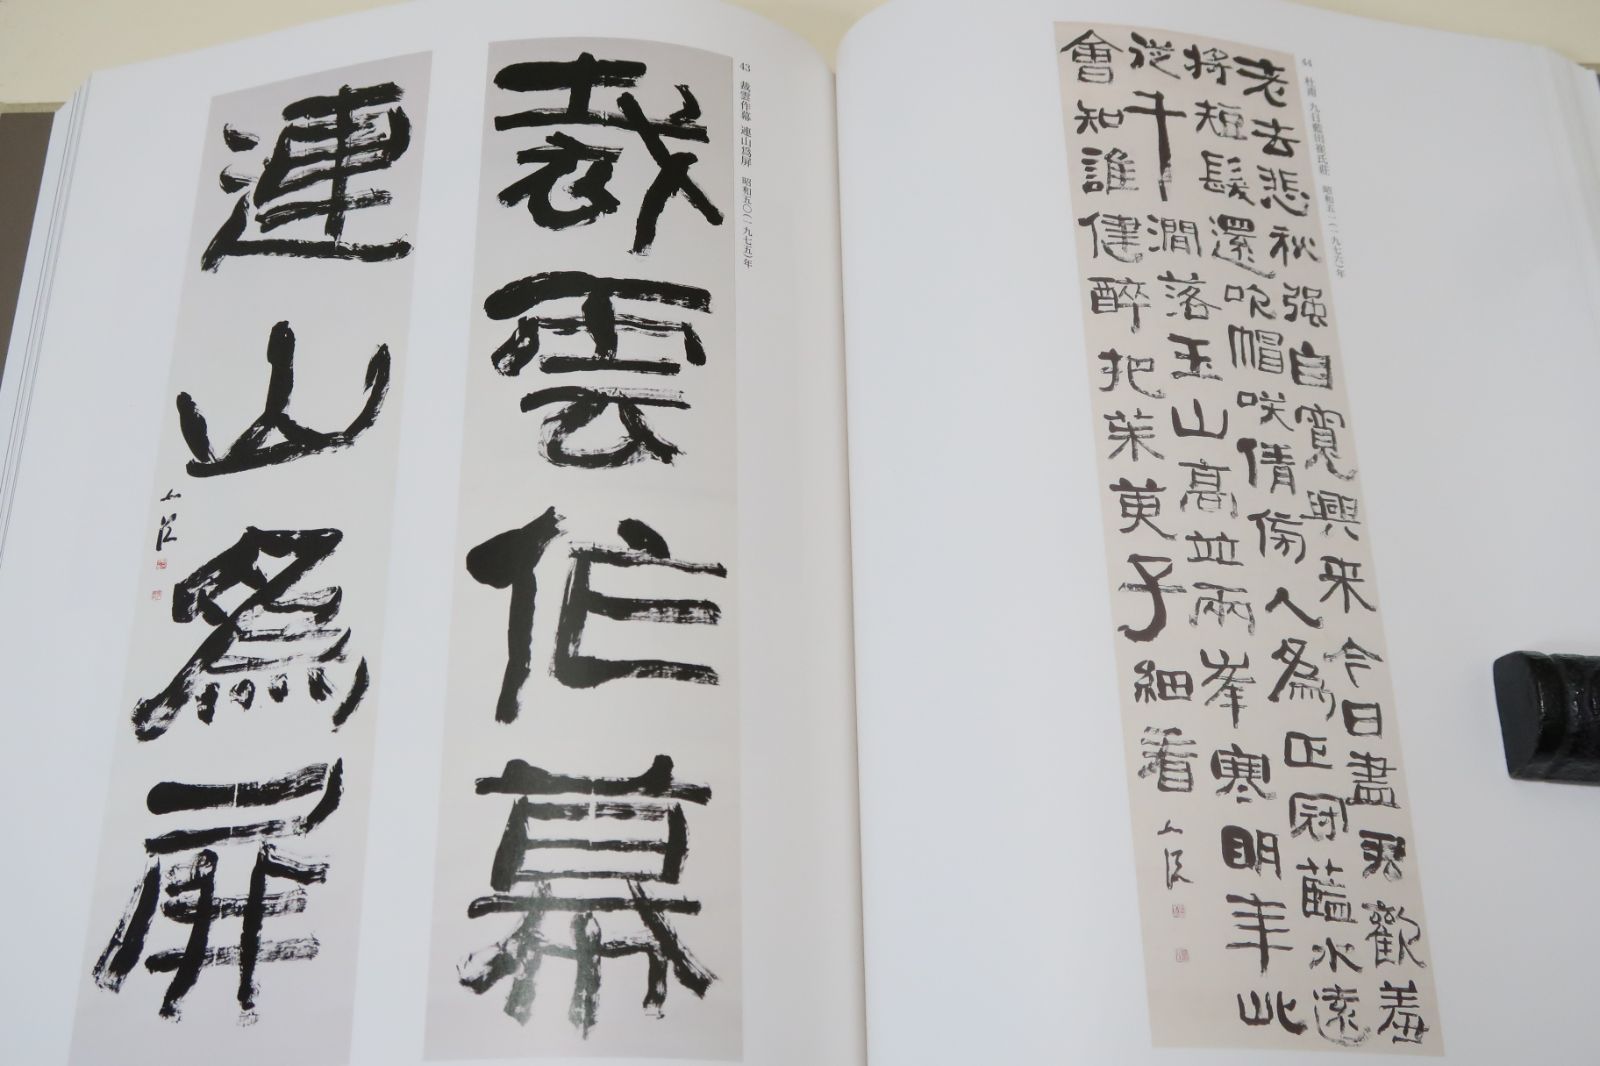 43 裁雲作幕 連山爲屏 昭和五〇(一九七五)年
裁雲作幕
連山爲屏
44 杜甫 九日藍田崔氏莊 昭和五一(一九七六)年
老去悲秋强自寛興来今日盡君歡羞
將短髮還吹帽咲倩傍人爲正冠藍水遠
從千澗落玉山高並兩峯寒明年此
會知誰健醉把茱萸子細看